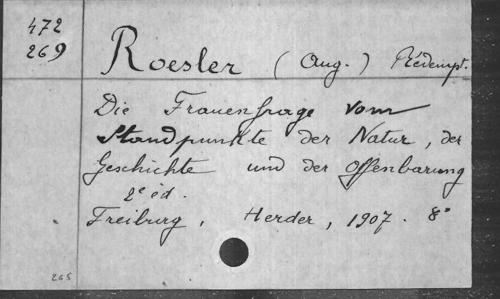 472
269
Roesler (Aug.) Rédempt.
Die Frauenfrage vom
Standpunkte der Natur, der
Geschichte und der Offenbarung
2e éd.
Freiburg, Herder, 1907. 8°
265